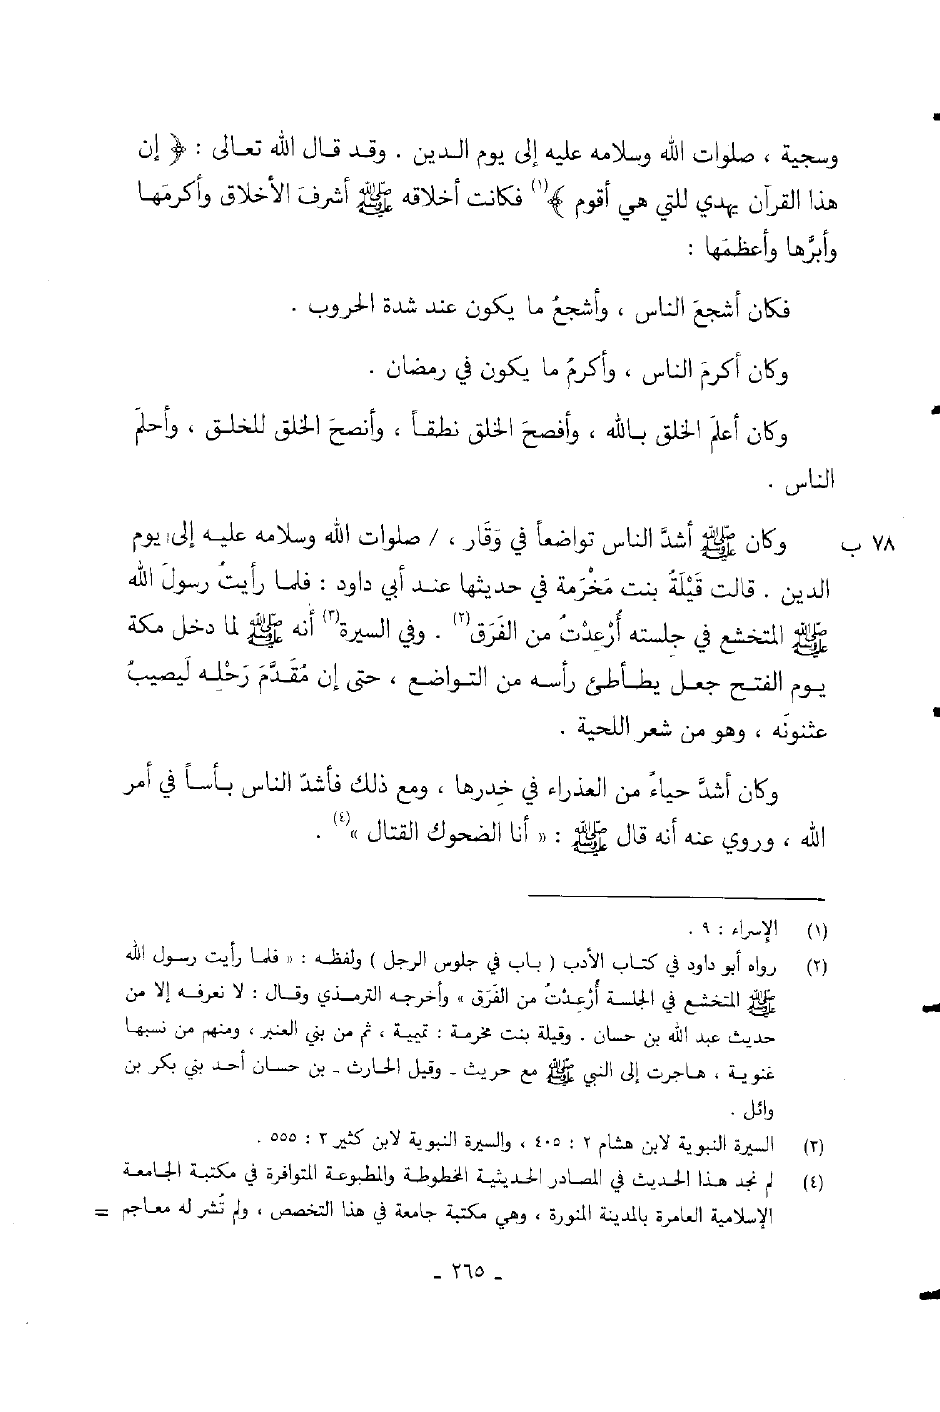 وسجية ، صلوات الله وسلامه عليه إلى يوم الدين . وقد قال الله تعالى : ﴿ إن
هذا القرآن يهدي للتي هي أقوم ﴾(١) فكانت أخلاقه ﷺ أشرفَ الأخلاق وأكرمَها
وأبرَّها وأعظمَها :
فكان أشجعَ الناس ، وأشجعُ ما يكون عند شدة الحروب .
وكان أكرمَ الناس ، وأكرمُ ما يكون في رمضان .
وكان أعلمَ الخلق بالله ، وأفصحَ الخلق نطقاً ، وأنصحَ الخلق للخلق ، وأحلمَ
الناس .
٧٨ ب وكان ﷺ أشدَّ الناس تواضعاً في وَقَار ، / صلوات الله وسلامه عليه إلى يوم
الدين . قالت قَيْلَةُ بنت مَخْرَمة في حديثها عند أبي داود : فلما رأيتُ رسولَ الله
ﷺ المتخشع في جلسته أُرْعِدْتُ من الفَرَق(٢) . وفي السيرة(٣) أنه ﷺ لما دخل مكة
يوم الفتح جعل يطأطئ رأسه من التواضع ، حتى إن مُقَدَّمَ رَحْلِه لَيصيبُ
عثنونَه ، وهو من شعر اللحية .
وكان أشدَّ حياءً من العذراء في خِدرها ، ومع ذلك فأشدّ الناس بأساً في أمر
الله ، وروي عنه أنه قال ﷺ : « أنا الضحوك القتال »(٤) .
(١) الإسراء : ٩ .
(٢) رواه أبو داود في كتاب الأدب ( باب في جلوس الرجل ) ولفظه : « فلما رأيت رسول الله
ﷺ المتخشع في الجلسة أُرْعِدْتُ من الفَرَق » وأخرجه الترمذي وقال : لا نعرفه إلا من
حديث عبد الله بن حسان . وقيلة بنت مخرمة : تميمية ، ثم من بني العنبر ، ومنهم من نسبها
غنوية ، هاجرت إلى النبي ﷺ مع حريث ـ وقيل الحارث ـ بن حسان أحد بني بكر بن
وائل .
(٣) السيرة النبوية لابن هشام ٢ : ٤٠٥ ، والسيرة النبوية لابن كثير ٣ : ٥٥٥ .
(٤) لم نجد هذا الحديث في المصادر الحديثية المخطوطة والمطبوعة المتوافرة في مكتبة الجامعة
الإسلامية العامرة بالمدينة المنورة ، وهي مكتبة جامعة في هذا التخصص ، ولم تُشر له معاجم =
ـ ٢٦٥ ـ